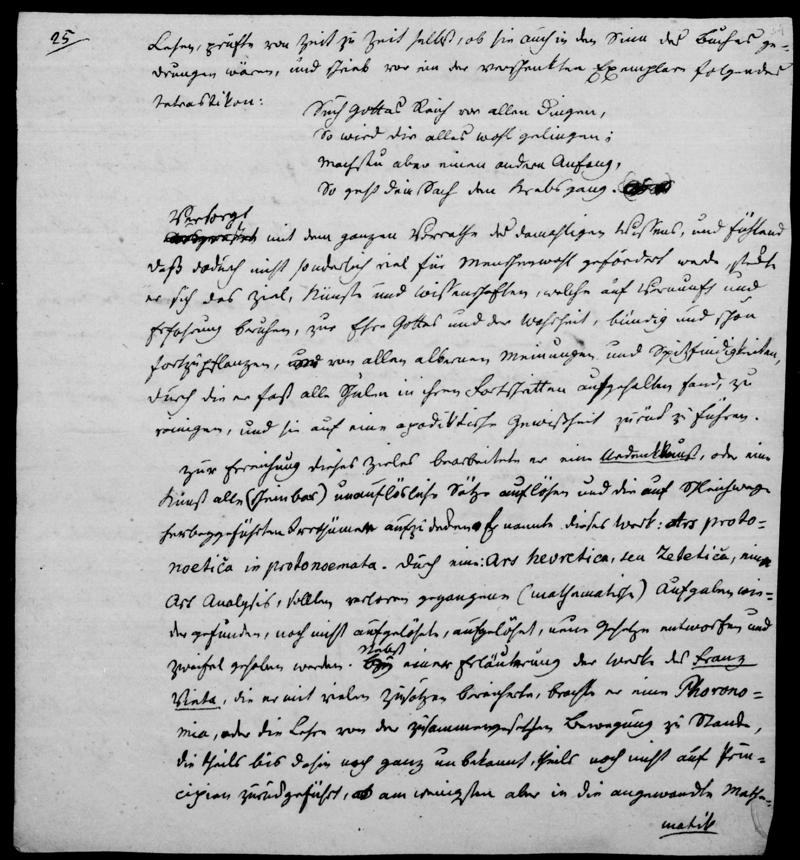 25
Lesen, prüfte von Zeit zu Zeit selbst, ob sie auch in den Sinn des Buches ge-
drungen wären, und schrieb vor ein der verschenkten Exemplare folgendes
Tetrastikon:
Such Gottes Reich vor allen Dingen,
So wird dir alles wohl gelingen;
Machstu aber einen andern Anfang,
So geht dein Sach den Krebsgang.
Versorgt
mit dem ganzen Vorrathe des damahligen Wissens, und fühlend
daß dadurch nicht sonderlich viel für Menschenwohl gefördert werde, steckte
er sich das Ziel, Künste und Wissenschaften, welche auf Vernunft und
Erfahrung beruhen, zur Ehre Gottes und der Wahrheit, bündig und schön
fortzupflanzen, von allen albernen Meinungen und Spitzfindigkeiten,
durch die er fast alle Schulen in ihren Fortschritten aufgehalten fand, zu
reinigen, und sie auf eine apodiktische Gewißheit zurück zu führen.
Zur Erreichung dieses Zieles bearbeitete er eine Urdenkkunst, oder eine
Kunst alle (scheinbar) unauflösliche Sätze auflösen und die auf Schleichwege
herbeygeführten Irrthümer aufzudecken. Er nannte dieses Werk: Ars proto-
noetica in protonoemata. Durch eine: Ars hevretica, seu Zetetica, eine
Ars Analysis, sollten verloren gegangene (mathematische) Aufgaben wie-
der gefunden, noch nicht aufgelöste, aufgelöset, neue Gesetze entworfen und
Zweifel gehoben werden. Nebst einer Erläuterung der Werke des Franz
Vieta, die er mit vielen Zusätzen bereicherte, brachte er eine Phorono-
mia, oder die Lehre von der zusammengesetzten Bewegung zu Stande,
die theils bis dahin noch ganz unbekannt, theils noch nicht auf Prin-
cipien zurückgeführt, am wenigsten aber in die angewandte Mathe-
matik